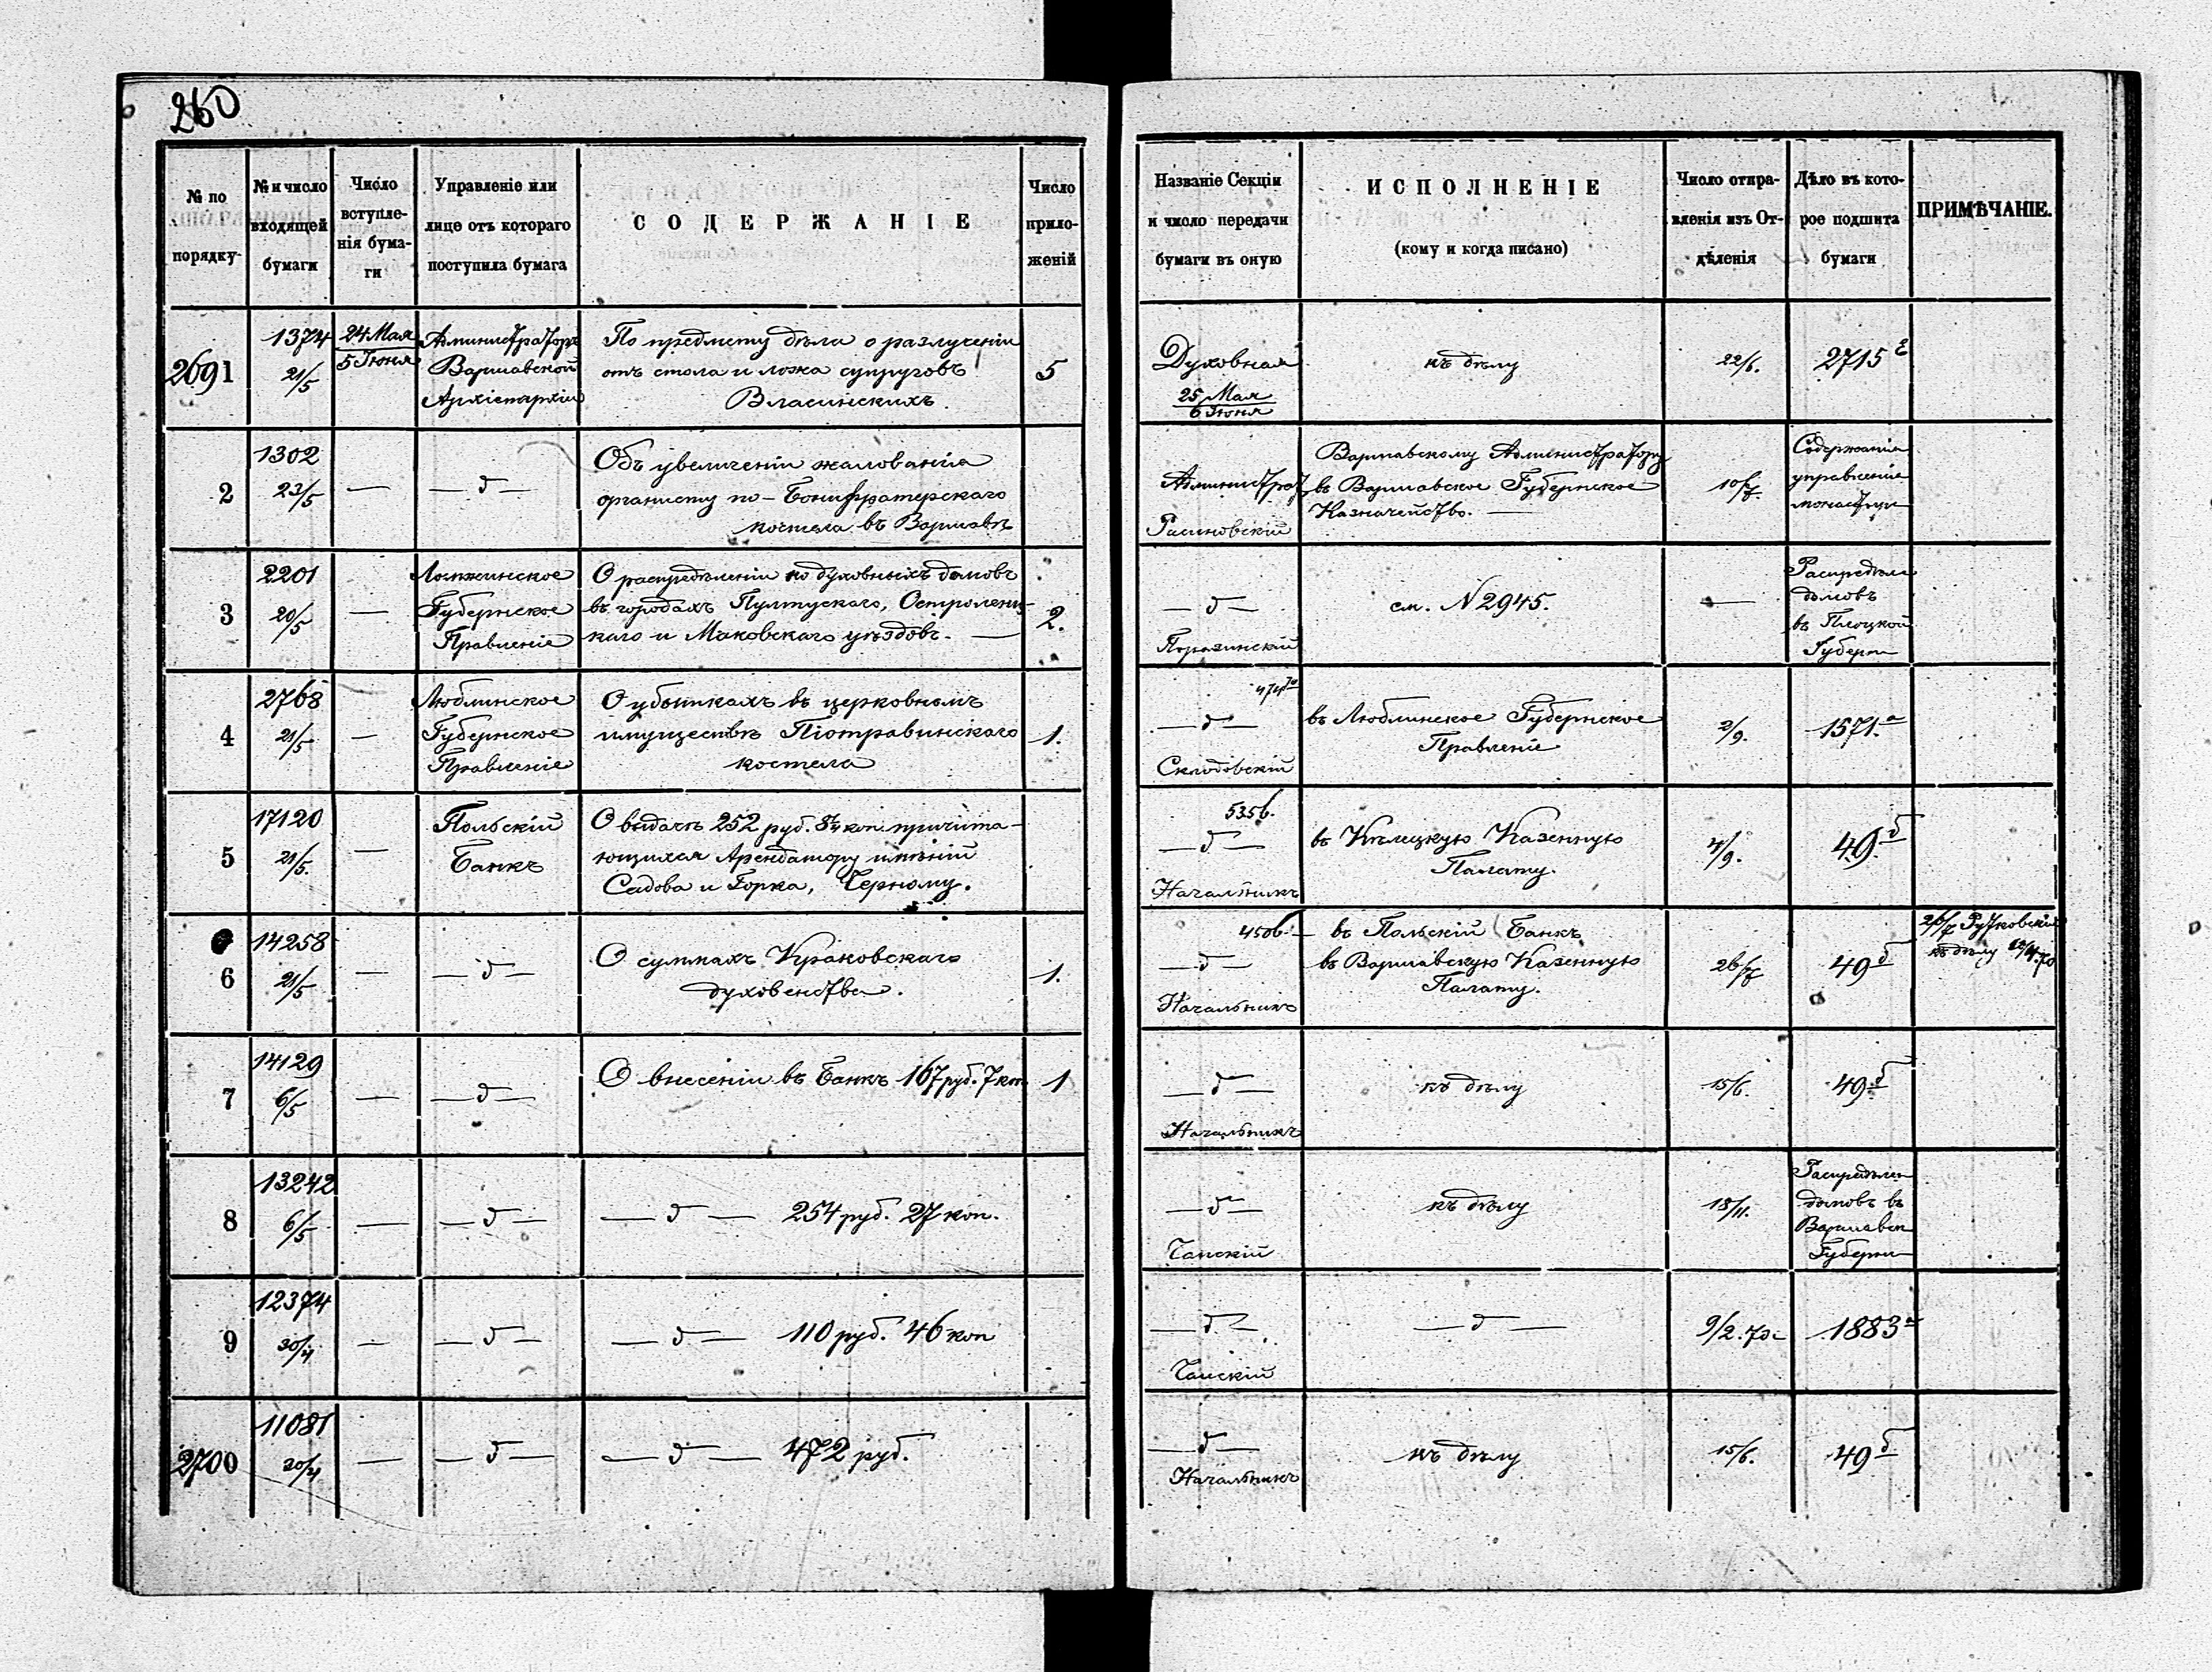 260
№ по
порядку
№ и число
входящей
бумаги
Число
вступле-
нія бума-
ги
Управленіе или
лице отъ котораго
поступила бумага
СОДЕРЖАНІЕ
Число
прило-
женій
Названіе Секціи
и число передачи
бумаги въ оную
ИСПОЛНЕНІЕ
(кому и когда писано)
Число отпра-
вленія изъ От-
дѣленія
Дѣло въ кото-
рое подшита
бумаги
ПРИМѢЧАНІЕ.
2691
1374
21/5
24 Мая
5 Іюня
Администраторъ
Варшавской
Архіепархіи
По предмету дѣла о разлученіи
отъ стола и ложа супруговъ
Власинскихъ.
5
Духовная
25 Мая
6 Іюня
къ дѣлу
22/6.
2715
2
1302
23/5
—
— д —
Объ увеличеніи жалованія
органисту по-Бонифратерскаго
костела въ Варшавѣ
Администрат
Варшавскому Администратору
въ Варшавское Губернское
Казначейство. —
10/7.
Содержаніе
управленіе
монастыр
3
2201
20/5
—
Ломжинское
Губернское
Правленіе
О распредѣленіи по духовныхъ домовъ
въ городахъ Пултускаго, Остроленс-
каго и Маковскаго уѣздовъ. —
2.
— д —
см. N 2945.
—
Распредѣле
домовъ
въ Плоцкой
Губерн
4
2768
21/5
—
Люблинское
Губернское
Правленіе
О убыткахъ въ церковномъ
имуществѣ Піотравинскаго
костела
1.
— д —
Склодовскій
въ Люблинское Губернское
Правленіе
2/9.
1571.а
5
17120
21/5.
—
Польскій
Банкъ
О выдачѣ 252 руб. коп. причита-
ющихся Арендатору имѣній
Садова и Горка, Черному.
535б.
— д —
Начальникъ
въ Кѣлецкую Казенную
Палату.
4/9.
49 б
6
14258
21/5
—
— д —
О суммахъ Краковскаго
духовенства.
1.
450б.
— д —
Начальникъ
въ Польскій Банкъ
въ Варшавскую Казенную
Палату.
26/7
49 б
26/7 Рутковскій
къ дѣлу
7
14129
6/5
—
— д —
О внесеніи въ Банкъ 167 руб. 7 коп.
1
— д —
Начальникъ
къ дѣлу
15/6.
49 б
8
13242
6/5
—
— д —
— д — 254 руб. 27 коп.
— д —
Чапскій
къ дѣлу
18/11.
Распредѣлен
домовъ въ
Варшавск
Губерни
9
12374
30/4
—
— д —
— д — 110 руб. 46 коп
— д —
Чапскій
— д —
9/2.70
1883 а
2700
11081
20/4
—
— д —
— д — 472 руб.
— д —
Начальникъ
къ дѣлу
15/6.
49 б